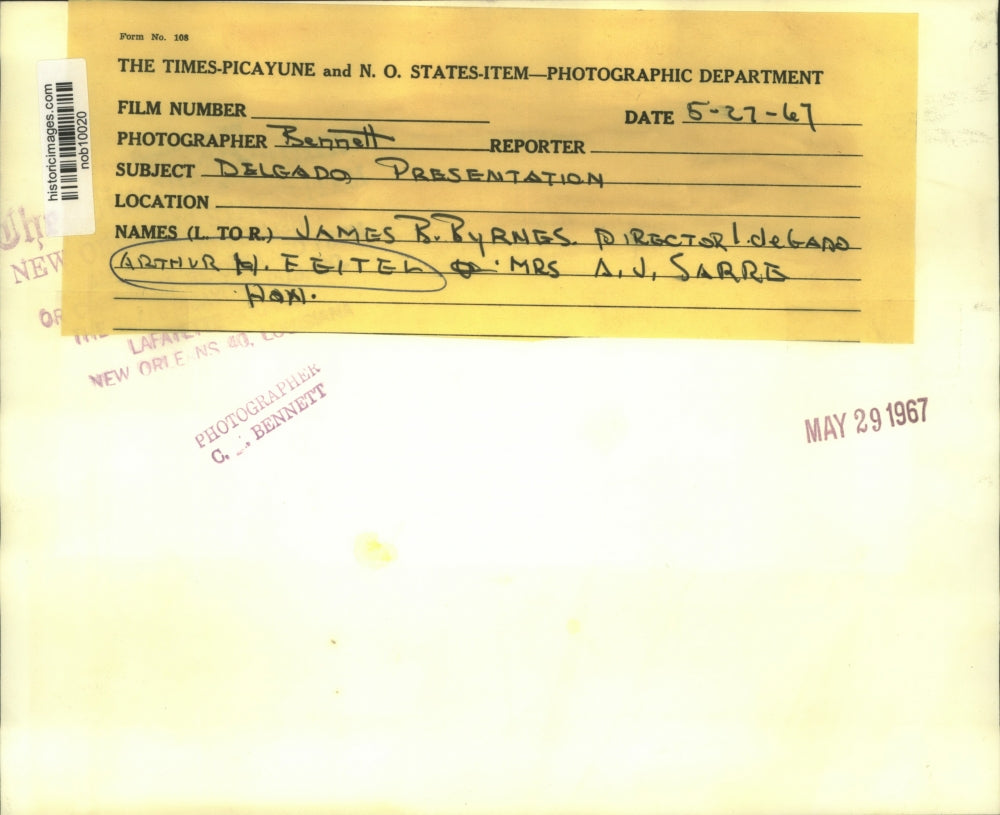 Form No. 108
THE TIMES-PICAYUNE and N. O. STATES-ITEM—PHOTOGRAPHIC DEPARTMENT
FILM NUMBER
DATE 5-27-67
PHOTOGRAPHER Bennett REPORTER
SUBJECT DELGADO PRESENTATION
LOCATION
NAMES (L. TO R.) JAMES B. BYRNES. DIRECTOR deLGADO
ARTHUR H. FEITEL MRS A.J. SARRE
historicimages.com
nob10020
The
NEW
OF
LAFAYET
NEW ORLEANS 40, LOUISIANA
PHOTOGRAPHER
C. BENNETT
MAY 29 1967